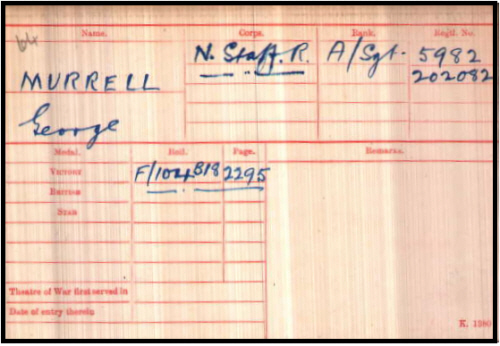 64
Name. Corps. Rank. Regtl. No.
MURRELL N. Staff. R. A/Sgt. 5982
202082
George
Medal. Roll. Page. Remarks.
VICTORY F/104B18 2295
BRITISH
STAR
Theatre of War first served in
Date of entry therein
K. 1380